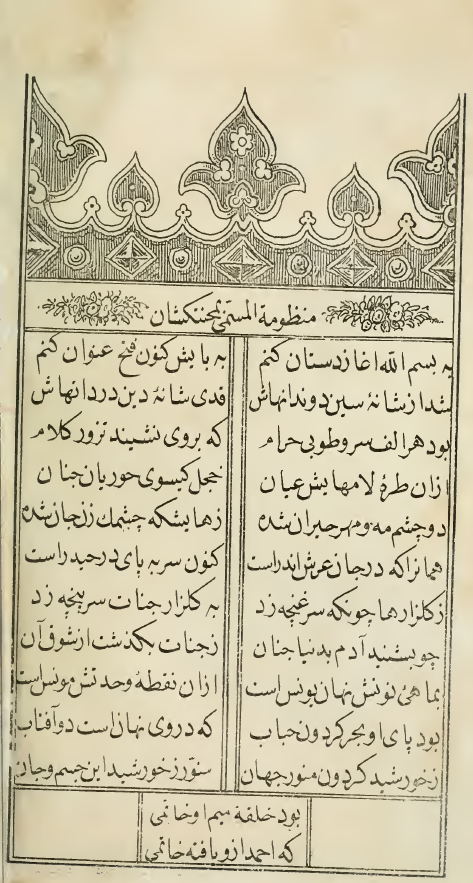 منظومة المسمی بمحنتکشان
به بسم الله اغاز دستان کنم به بایش کنون فتح عنوان کنم
شد از شانهٔ سین دو دندانهاش قدی شانهٔ دین در دانهاش
بود هر الف سرو طوبی حرام که بروی نشیند تزور کلام
ازان طرهٔ لامهایش عیان خجل کیسوی حوریان جنان
دو چشم مه و مهر حیران شده زهایشکه چشمك زن جان شده
همانراکه در جان عرش اندر است کنون سر به پای در حیدر است
ز کلزار ها چونکه سر غنچه زد به کلزار جنات سر پنچه زد
چو بشنید آدم بدنیا جنان ز جنات بکذشت از شوق آن
بماهئ نونش نهان یونس است ازان نقطهٔ وحدتش مونس است
بود پای او بحر کردون حباب که در وی نهان است دو آفتاب
ز خورشید کردون منور جهان منوّر ز خورشید این جسم و جان
بود خلقهٔ میم او خاتمی
که احمد ازو یافته خاتمی